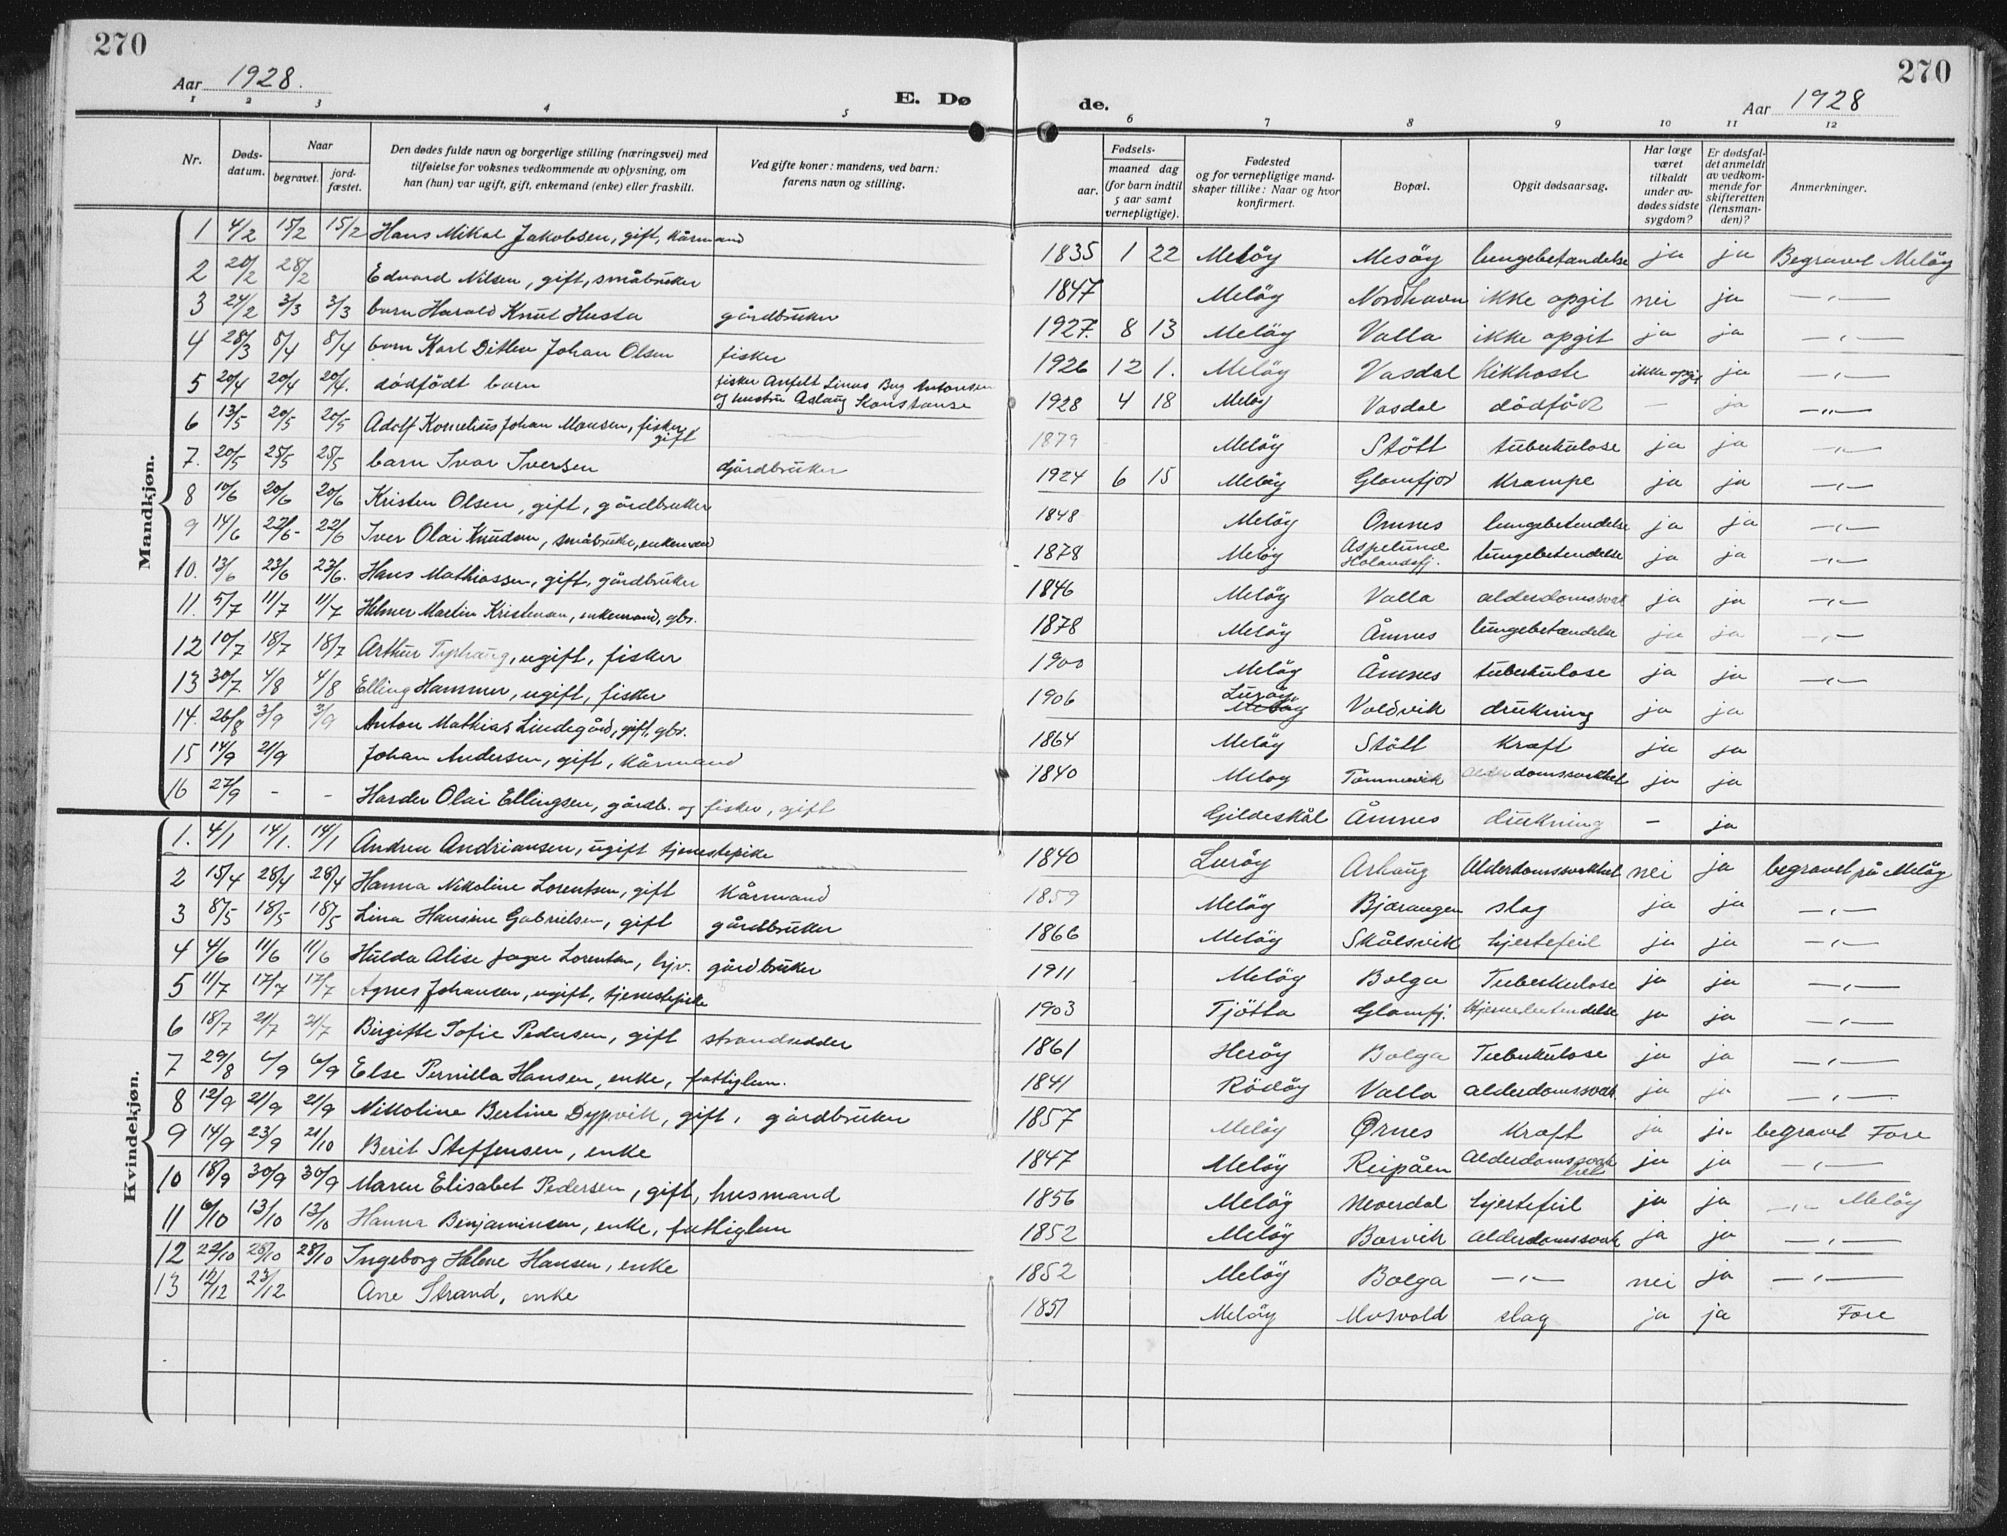 270
270
Aar 1928.
Aar 1928
E. Dø
de.
1 2 3 4 5
6 7 8 9 10 11 12
Nr.
Døds-
datum.
Naar
begravet.
jord-
fæstet.
Den dødes fulde navn og borgerlige stilling (næringsvei) med
tilføielse for voksnes vedkommende av oplysning, om
han (hun) var ugift, gift, enkemand (enke) eller fraskilt.
Ved gifte koner: mandens, ved barn:
farens navn og stilling.
Fødsels-
aar.
maaned dag
(for barn indtil
5 aar samt
vernepligtige).
Fødested
og for vernepligtige mand-
skaper tillike: Naar og hvor
konfirmert.
Bopæl.
Opgit dødsaarsag.
Har læge
været
tilkaldt
under av-
dødes sidste
sygdom?
Er dødsfal-
det anmeldt
av vedkom-
mende for
skifteretten
(lensman-
den)?
Anmerkninger.
Mandkjøn.
1 4/2 15/2 15/2 Hans Mikal Jakobsen, gift, kårmand
2 20/2 28/2 Edvard Nilsen, gift, småbruker
3 24/2 3/3 3/3 barn Harald Knut Husta gårdbruker
4 28/3 8/4 8/4 barn Karl Ditlev Johan Olsen fisker
5 20/4 20/4 20/4. dödfödt barn fisker Anfelt Linus Berg Antonsen
og hustru Aslaug Konstanse
6 13/5 20/5 20/5 Adolf Kornelius Johan Monsen, fisker,
gift
7. 20/5 28/5 28/5 barn Ivar Iversen Gårdbruker
8 10/6 20/6 20/6 Kristen Olsen, gift, gårdbruker
9 14/6 22/6 22/6 Iver Olai Knudsen, småbruker, enkemand
10. 13/6 23/6 23/6. Hans Mathiassen, gift, gårdbruker
11. 5/7 11/7 11/7 Helmer Martin Kristensen, enkemand, gbr.
12 10/7 18/7 18/7 Arthur Tyshaug, ugift, fisker
13 30/7. 4/8 4/8 Elling Hammer, ugift, fisker
14. 26/8 3/9 3/9 Anton Mathias Lindegård, gift, gbr.
15 14/9 21/9 Johan Andersen, gift, kårmand
16 27/9 - - Harder Olai Ellingsen, gårdb. og fisker, gift
Kvindekjøn.
1. 4/1 14/1. 14/1 Andrea Andriansen, ugift tjenestepike
2 15/4 28/4 28/4 Hanna Nikoline Lorentsen, gift kårmand
3 8/5 18/5 18/5 Lina Hansine Gabrielsen, gift gårdbruker
4 4/6 11/6 11/6 Hulda Alise Lorentsen, hjv. gårdbruker
5 11/7 17/7 17/7 Agnes Johansen, ugift, tjenestepike
6 18/7 21/7 21/7 Birgitte Sofie Pedersen, gift strandsidder
7 29/8 6/9 6/9 Else Pernilla Hansen, enke, fattiglem.
8 12/9 21/9 21/9 Nikoline Bertine Dypvik, gift, gårdbruker
9 14/9 23/9 21/10 Berit Steffensen, enke
10 18/9 30/9 30/9 Maren Elisabet Pedersen, gift, husmand
11 6/10 13/10 13/10 Hanna Benjaminsen, enke, fattiglem
12 22/10 28/10 28/10 Ingeborg Helene Hansen, enke
13 12/12 23/12 Ane Strand, enke
1835 1 22 Melöy Mesöy lungebetændelse ja ja Begravet Melöy
1847 Melöy Nordhavn ikke opgit nei ja —„—
1927. 8 13 Melöy Valla ikke opgit ja ja —„—
1926 12 1. Melöy Vasdal Kikhoste ikke opgit ja —„—
1928 4 18 Melöy Vasdal dödfödt — ja —„—
1879 Melöy Stött tuberkulose ja ja —„—
1924 6 15 Melöy Glomfjord Krampe ja ja —„—
1848 Melöy Omnes lungebetendelse ja ja —„—
1878 Melöy Aspelund
Holandsfj. lungebetendelse ja ja —„—
1846 Melöy Valla alderdomssvak ja ja —„—
1878 Melöy Åmnes lungebetændelse ja ja —„—
1900 Melöy Åmnes tuberkulose ja ja —„—
1906 Luröy
Melöy Valdvik drukning ja ja
1864 Melöy Stött Kræft ja ja
1840 Melöy Tömmervik Alderdomssvakhet ja ja
Gildeskål Åmnes drukning — ja
1840 Luröy Åshaug Alderdomssvakhet nei ja begravet på Melöy
1859 Melöy Bjærangen slag ja ja —„—
1866 Melöy Skålsvik hjertefeil ja ja —„—
1911 Melöy Bolga Tuberkulose ja ja —„—
1903 Tjötta Glomfj. Hjernebetendelse ja ja —„—
1861 Heröy Bolga Tuberkulose ja ja —„—
1841 Rödöy Valla alderdomssvak ja ja —„—
1857 Melöy Ørnes Kræft ja ja begravet Fore
1847 Melöy Reipåen Alderdomssvak
het ja ja —„—
1856 Melöy Neverdal hjertefeil ja ja —„— Melöy
1852 Melöy Borvik Alderdomssvak ja ja —„—
1852 Melöy Bolga —„— nei ja —„—
1851 Melöy Mosvold slag ja ja Fore